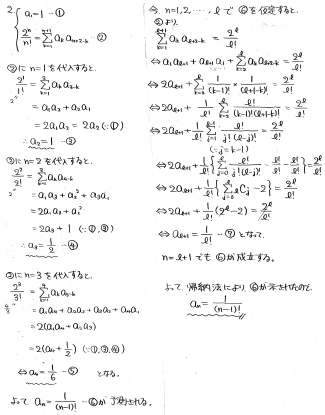 2. a₁ = 1 … ①
2ⁿ/n! = Σ_{k=1}^{n+1} aₖ aₙ₊₂₋ₖ … ②
②に n=1 を代入すると、
2¹/1! = Σ_{k=1}^{2} aₖ a₃₋ₖ
= a₁a₂ + a₂a₁
= 2a₁a₂ = 2a₂ (∵①)
∴ a₂ = 1 … ③
②に n=2 を代入すると、
2²/2! = Σ_{k=1}^{3} aₖ a₄₋ₖ
= a₁a₃ + a₂² + a₃a₁
= 2a₁a₃ + a₂²
= 2a₃ + 1 (∵①,③)
∴ a₃ = 1/2 … ④
②に n=3 を代入すると、
2³/3! = Σ_{k=1}^{4} aₖ a₅₋ₖ
= a₁a₄ + a₂a₃ + a₃a₂ + a₄a₁
= 2(a₁a₄ + a₂a₃)
= 2(a₄ + 1/2) (∵①,③,④)
⇔ a₄ = 1/6 … ⑤ となる。
よって aₙ = 1/(n-1)! … ⑥が予測される。
今 n=1,2,…,ℓ で ⑥を仮定すると、
②より
Σ_{k=1}^{ℓ+1} aₖ aℓ₊₂₋ₖ = 2^ℓ/ℓ!
⇔ a₁aℓ₊₁ + aℓ₊₁a₁ + Σ_{k=2}^{ℓ} aₖ aℓ₊₂₋ₖ = 2^ℓ/ℓ!
⇔ 2aℓ₊₁ + Σ_{k=2}^{ℓ} 1/(k-1)! × 1/(ℓ+1-k)! = 2^ℓ/ℓ!
⇔ 2aℓ₊₁ + 1/ℓ! Σ_{k=2}^{ℓ} ℓ!/((k-1)!(ℓ+1-k)!) = 2^ℓ/ℓ!
⇔ 2aℓ₊₁ + 1/ℓ! Σ_{j=1}^{ℓ-1} ℓ!/(j!(ℓ-j)!) = 2^ℓ/ℓ!
(∵ j=k-1)
⇔ 2aℓ₊₁ + 1/ℓ! {Σ_{j=0}^{ℓ} ℓ!/(j!(ℓ-j)!) - ℓ!/ℓ! - ℓ!/ℓ!} = 2^ℓ/ℓ!
⇔ 2aℓ₊₁ + 1/ℓ! {Σ_{j=0}^{ℓ} ℓCj - 2} = 2^ℓ/ℓ!
⇔ 2aℓ₊₁ + 1/ℓ! (2^ℓ - 2) = 2^ℓ/ℓ!
⇔ aℓ₊₁ = 1/ℓ! … ⑦ となって、
n=ℓ+1 でも ⑥が成立する。
よって 帰納法により ⑥が示されたので、
aₙ = 1/(n-1)!